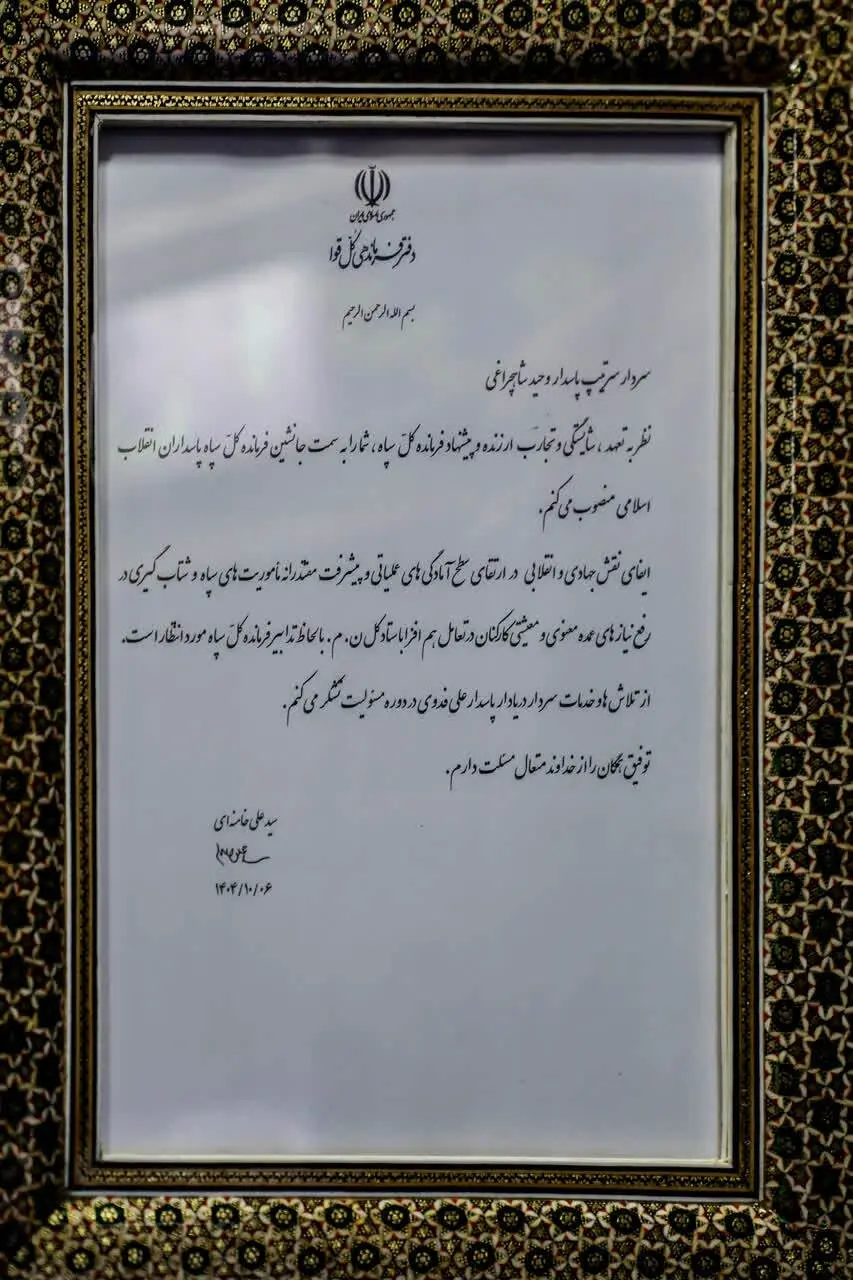 جمهوری اسلامی ایران
دفتر فرماندهی کل قوا
بسم الله الرحمن الرحیم
سردار سرتیپ پاسدار وحید شاهچراغی
نظر به تعهد، شایستگی و تجارب ارزنده و پیشنهاد فرمانده کلّ سپاه، شما را به سمت جانشین فرمانده کلّ سپاه پاسداران انقلاب
اسلامی منصوب می‌کنم.
ایفای نقش جهادی و انقلابی در ارتقای سطح آمادگی‌های عملیاتی و پیشرفت مقتدرانه مأموریت‌های سپاه و شتاب گیری در
رفع نیازهای عمده معنوی و معیشتی کارکنان در تعامل هم افزا با ستاد کل ن. م. با لحاظ تدابیر فرمانده کلّ سپاه مورد انتظار است.
از تلاش‌ها و خدمات سردار دریادار پاسدار علی فدوی در دوره مسئولیت تشکر می‌کنم.
توفیق همگان را از خداوند متعال مسئلت دارم.
سید علی خامنه‌ای
۱۴۰۴/۱۰/۰۶